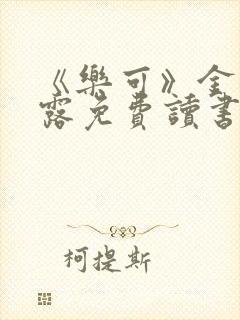 《樂可》全
露免費讀書
柯提斯